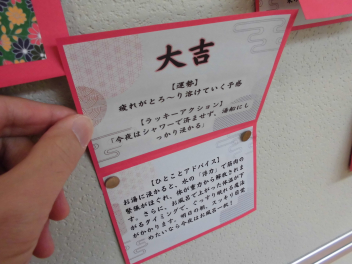 大吉
【運勢】
疲れがとろ～り溶けていく予感
【ラッキーアクション】
「今夜はシャワーで済ませず、湯船にし
っかり浸かる」
【ひとことアドバイス】
お湯に浸かると、水の「浮力」で筋肉の
緊張がほぐれ、体が重力から解放されま
す。さらに、お風呂で上がった体温が下
がるタイミングで、ぐっすり眠れる魔法
がかかります。明日の朝、スッキリ目覚
めたいなら今夜はお風呂一択！